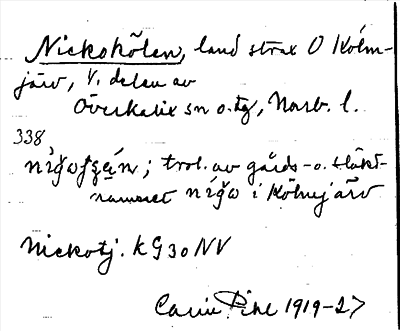 Nickohölen, land strax O Kölm-
järv, V. delen av
Överkalix sn o. tg, Norb. l.
338
; trol. av gårds- o. släkt-
namnet i Kölmjärv
Nickotj. KG 30 NV
Carin Pihl 1919-27